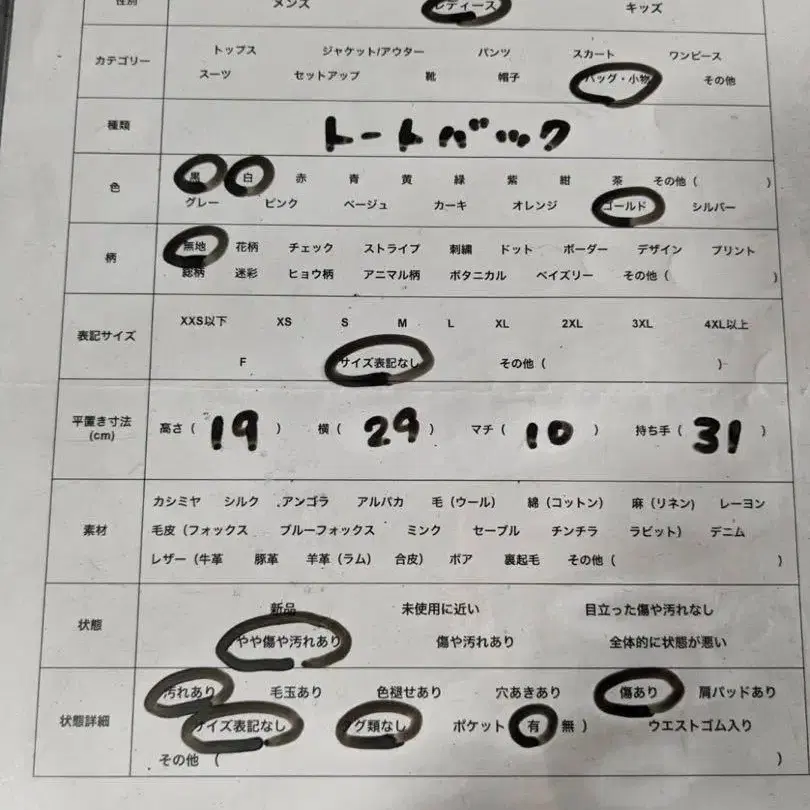 性別 メンズ レディース キッズ
カテゴリー トップス ジャケット/アウター パンツ スカート ワンピース
スーツ セットアップ 靴 帽子 バッグ・小物 その他
種類 トートバック
色 黒 白 赤 青 黄 緑 紫 紺 茶 その他 ( )
グレー ピンク ベージュ カーキ オレンジ ゴールド シルバー
柄 無地 花柄 チェック ストライプ 刺繍 ドット ボーダー デザイン プリント
総柄 迷彩 ヒョウ柄 アニマル柄 ボタニカル ペイズリー その他 ( )
表記サイズ XXS以下 XS S M L XL 2XL 3XL 4XL以上
F サイズ表記なし その他 ( )
平置き寸法 (cm) 高さ ( 19 ) 横 ( 29 ) マチ ( 10 ) 持ち手 ( 31 )
素材 カシミヤ シルク アンゴラ アルパカ 毛 (ウール) 綿 (コットン) 麻 (リネン) レーヨン
毛皮 (フォックス ブルーフォックス ミンク セーブル チンチラ ラビット) デニム
レザー (牛革 豚革 羊革 (ラム) 合皮) ボア 裏起毛 その他 ( )
状態 新品 未使用に近い 目立った傷や汚れなし
やや傷や汚れあり 傷や汚れあり 全体的に状態が悪い
状態詳細 汚れあり 毛玉あり 色褪せあり 穴あきあり 傷あり 肩パッドあり
サイズ表記なし タグ類なし ポケット 有 無 ) ウエストゴム入り
その他 ( )